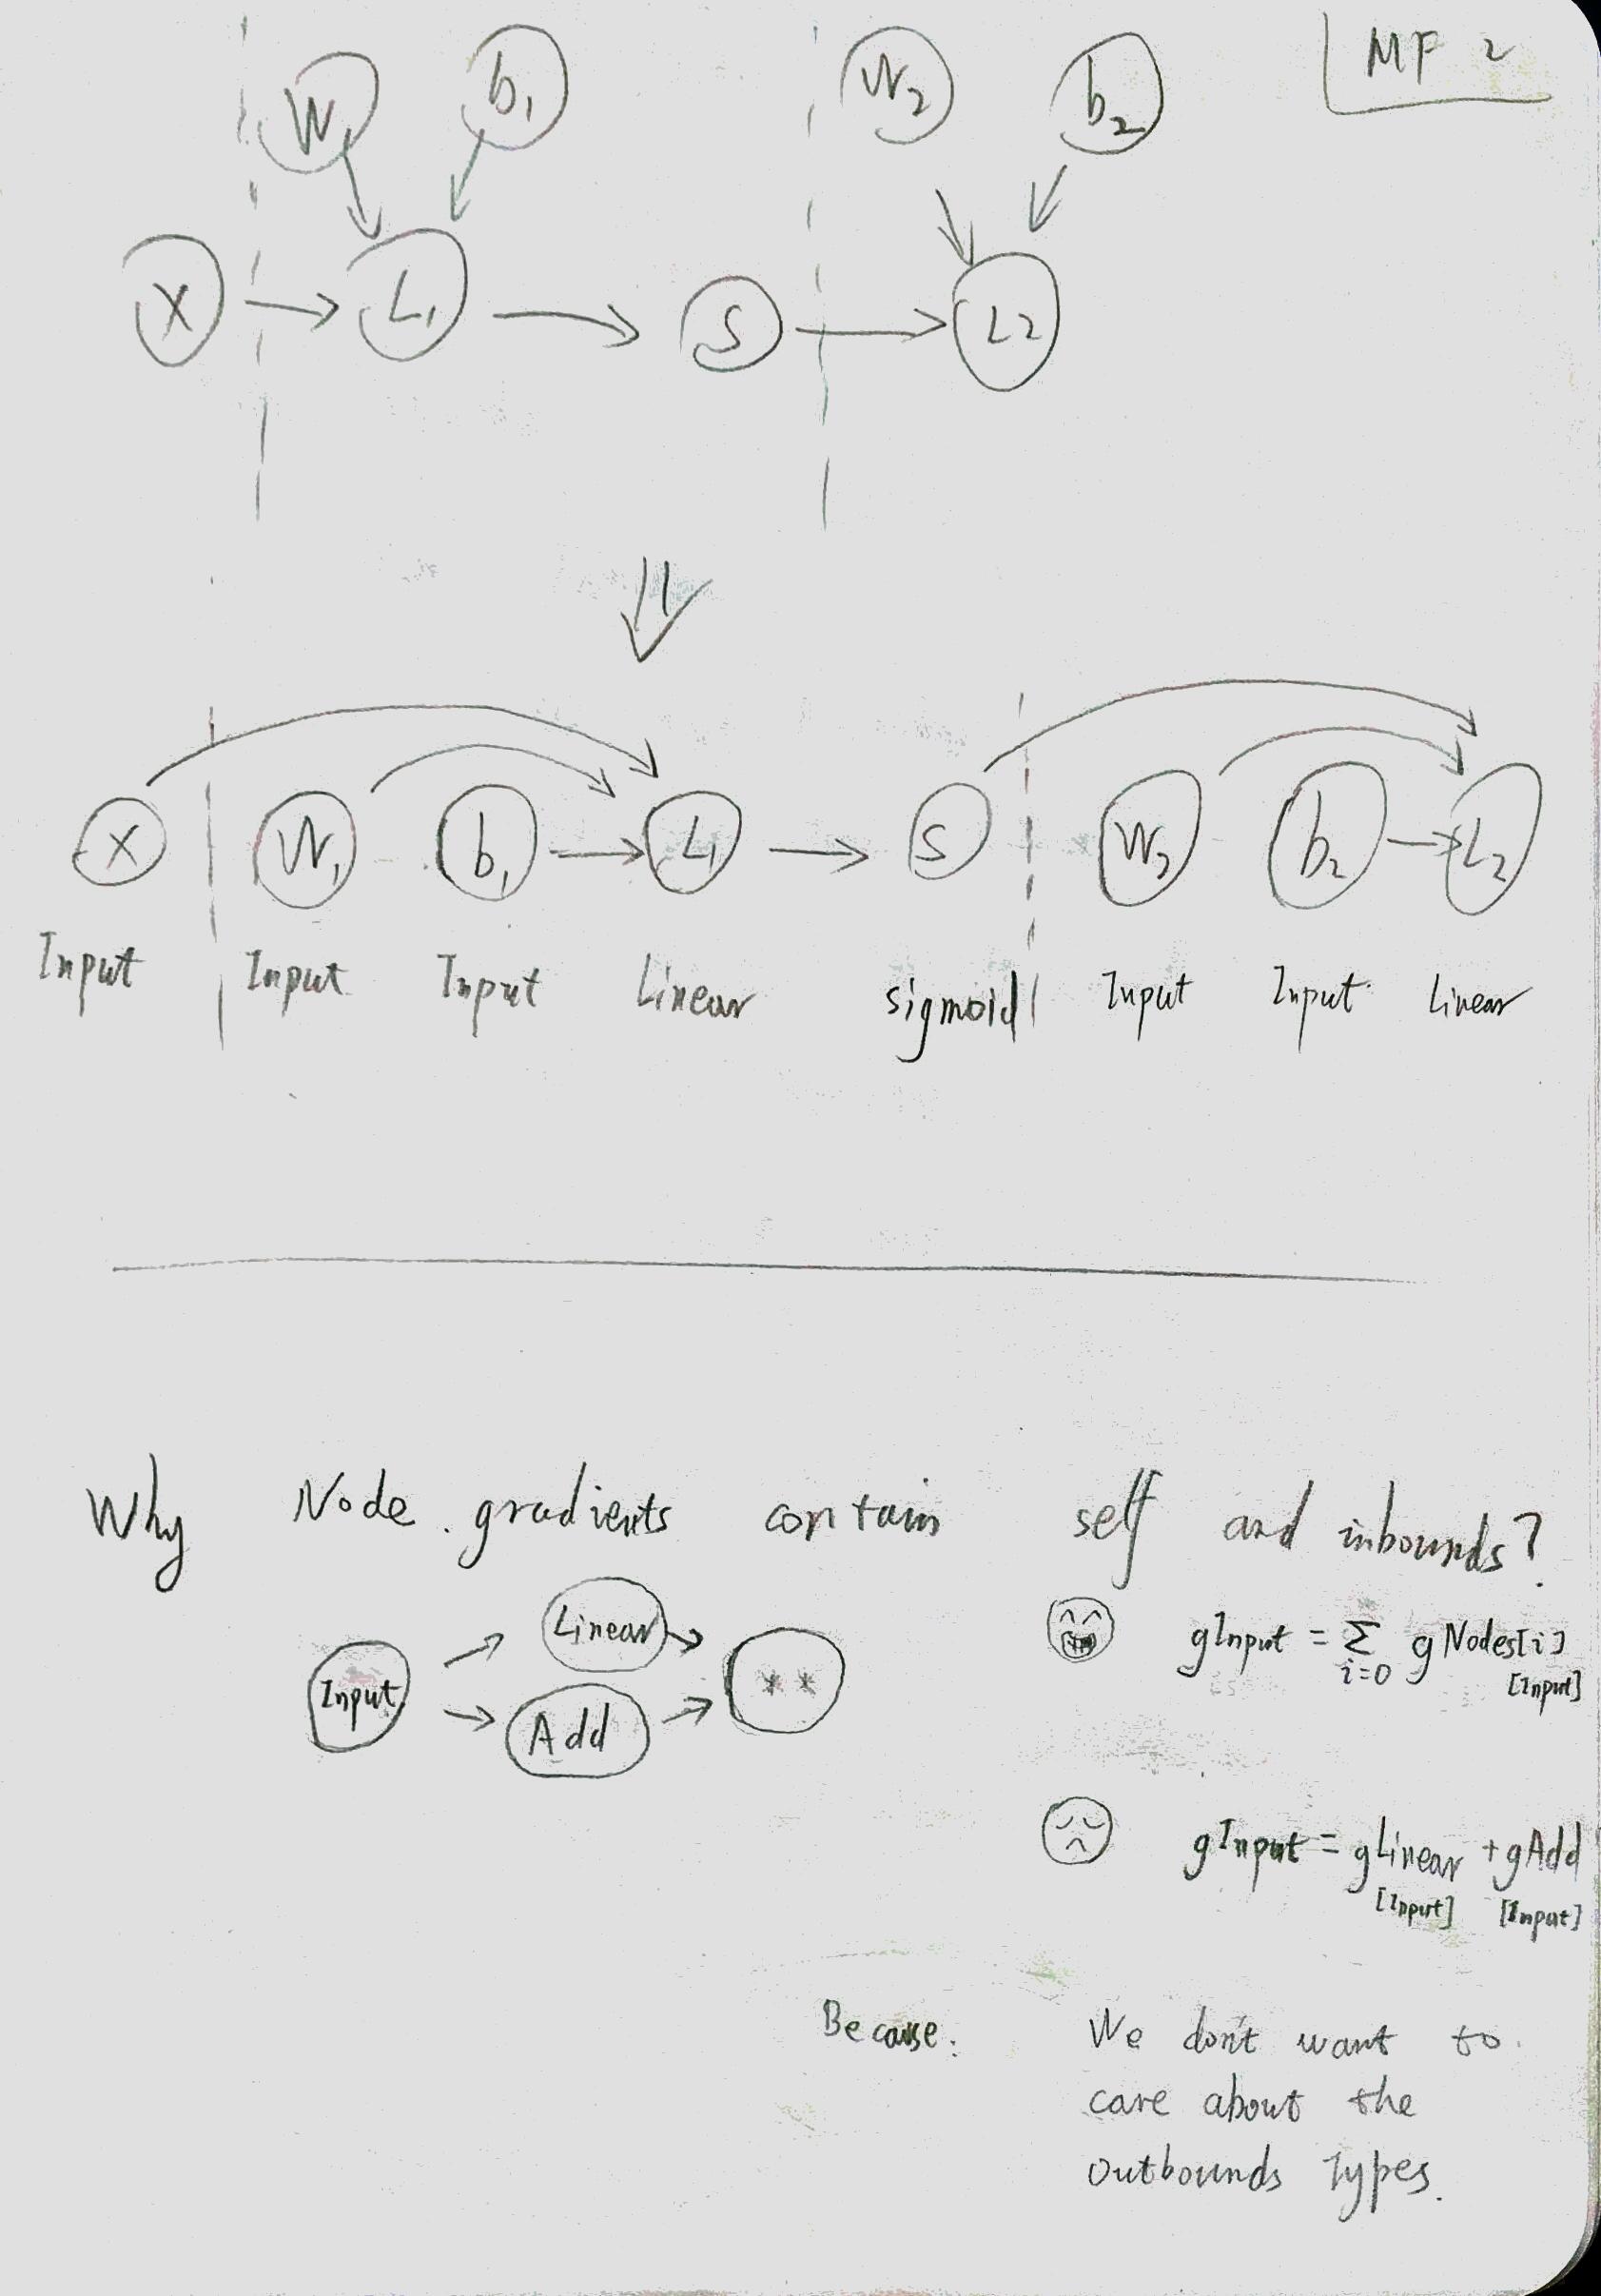 MF 2
W1 b1 W2 b2
X L1 S L2
X W1 b1 L1 S W2 b2 L2
Input Input Input Linear sigmoid Input Input Linear
Why Node.gradients contain self and inbounds?
Linear
Input
Add
* *
gInput = Σ i=0 gNodes[i] [Input]
gInput = gLinear [Input] + gAdd [Input]
Because: We don't want to
care about the
outbounds Types.